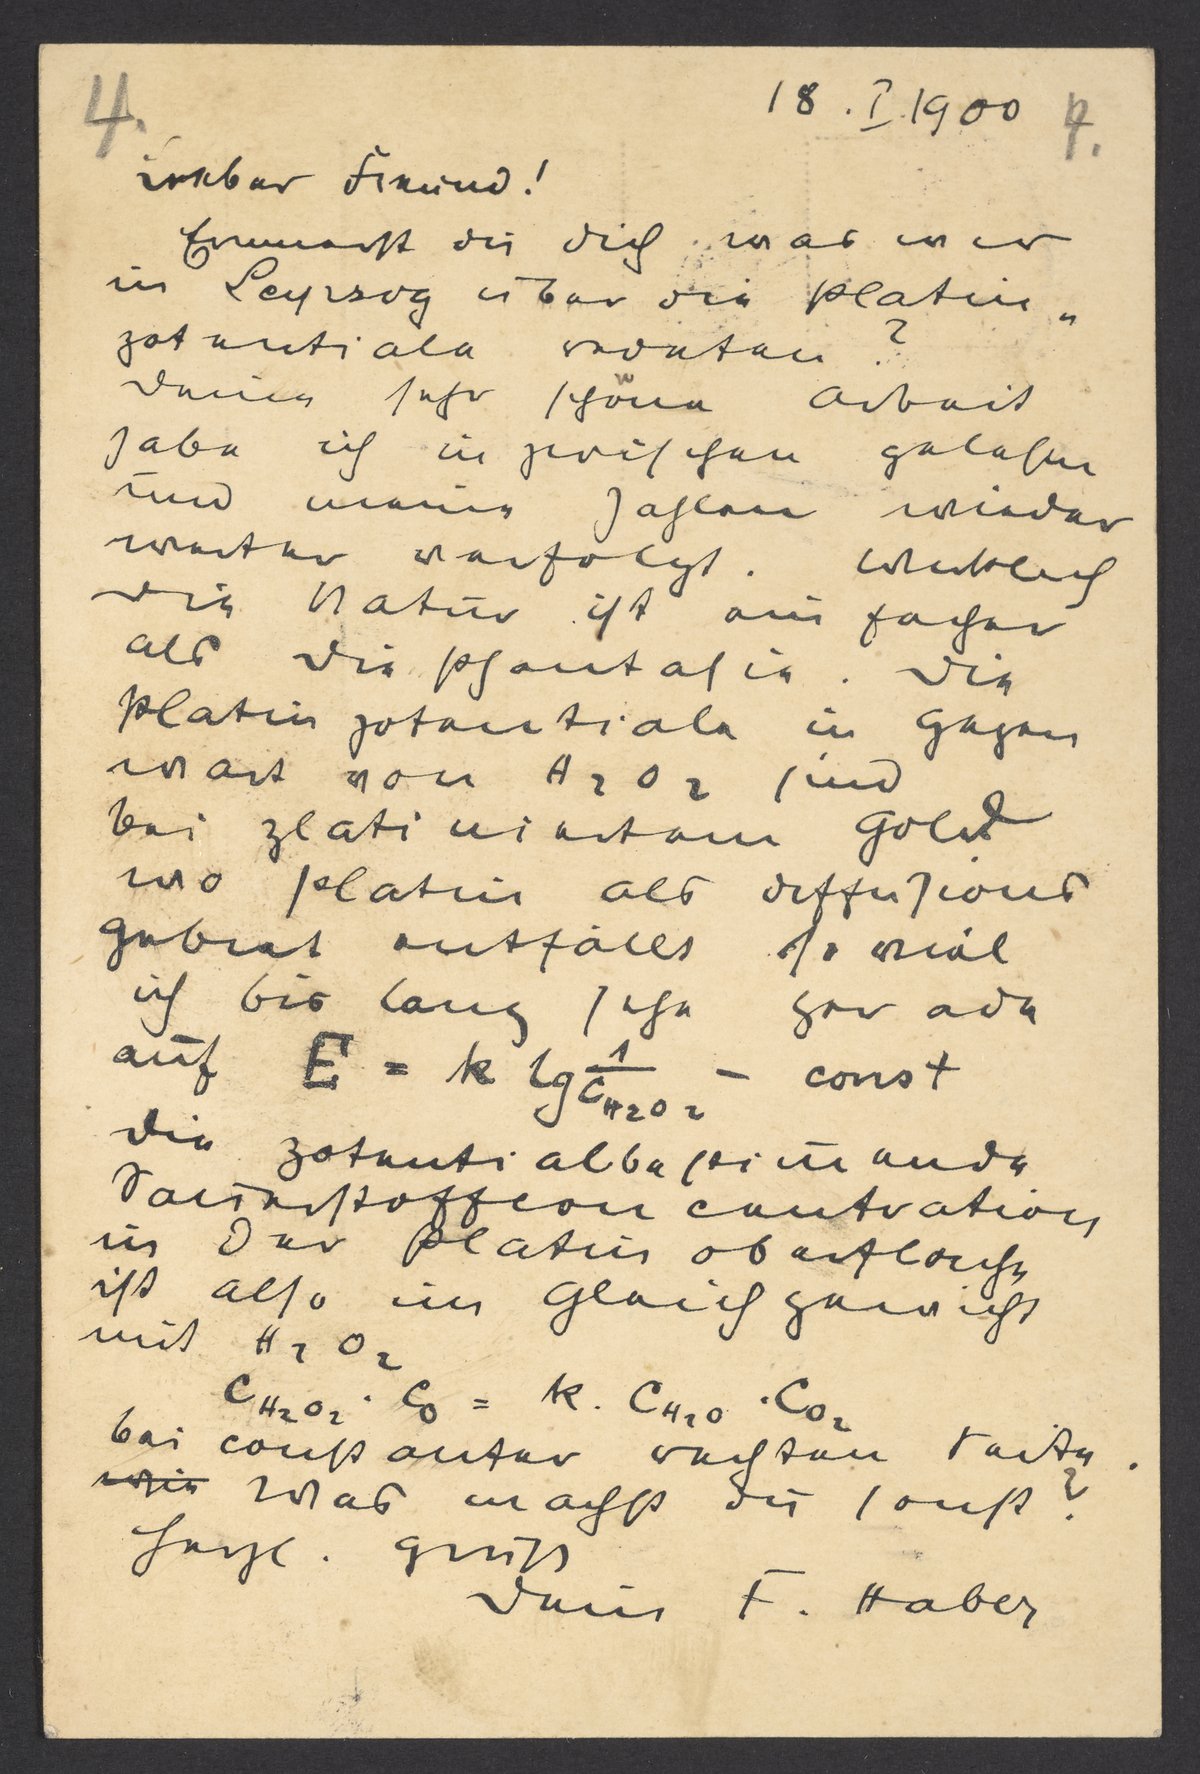 4.
18.I.1900 4.
Lieber Freund!
Erinnerst du dich was wir
in Leipzig über die Platin„
potentiale redeten?
Deine sehr schöne Arbeit
habe ich inzwischen gelesen
und meine Zahlen wieder
weiter verfolgt. Wirklich
die Natur ist einfacher
als die Phantasie. Die
Platinpotentiale in Gegen
wart von H2O2 sind
bei platiniertem Gold
wo Platin als Diffusions
gebiet entfällt so viel
ich bislang sehe gerade
auf E = k lg 1/cH2O2 - const
die potentialbestim̄ende
Sauerstoffconcentration
in der Platinoberfläche
ist also im Gleichgewicht
mit H2O2
CH2O2 · CO = k. CH2O · CO2
bei constanter rechten Seite.
wie Was machst du sonst?
Herzl. Gruß
Dein F. Haber